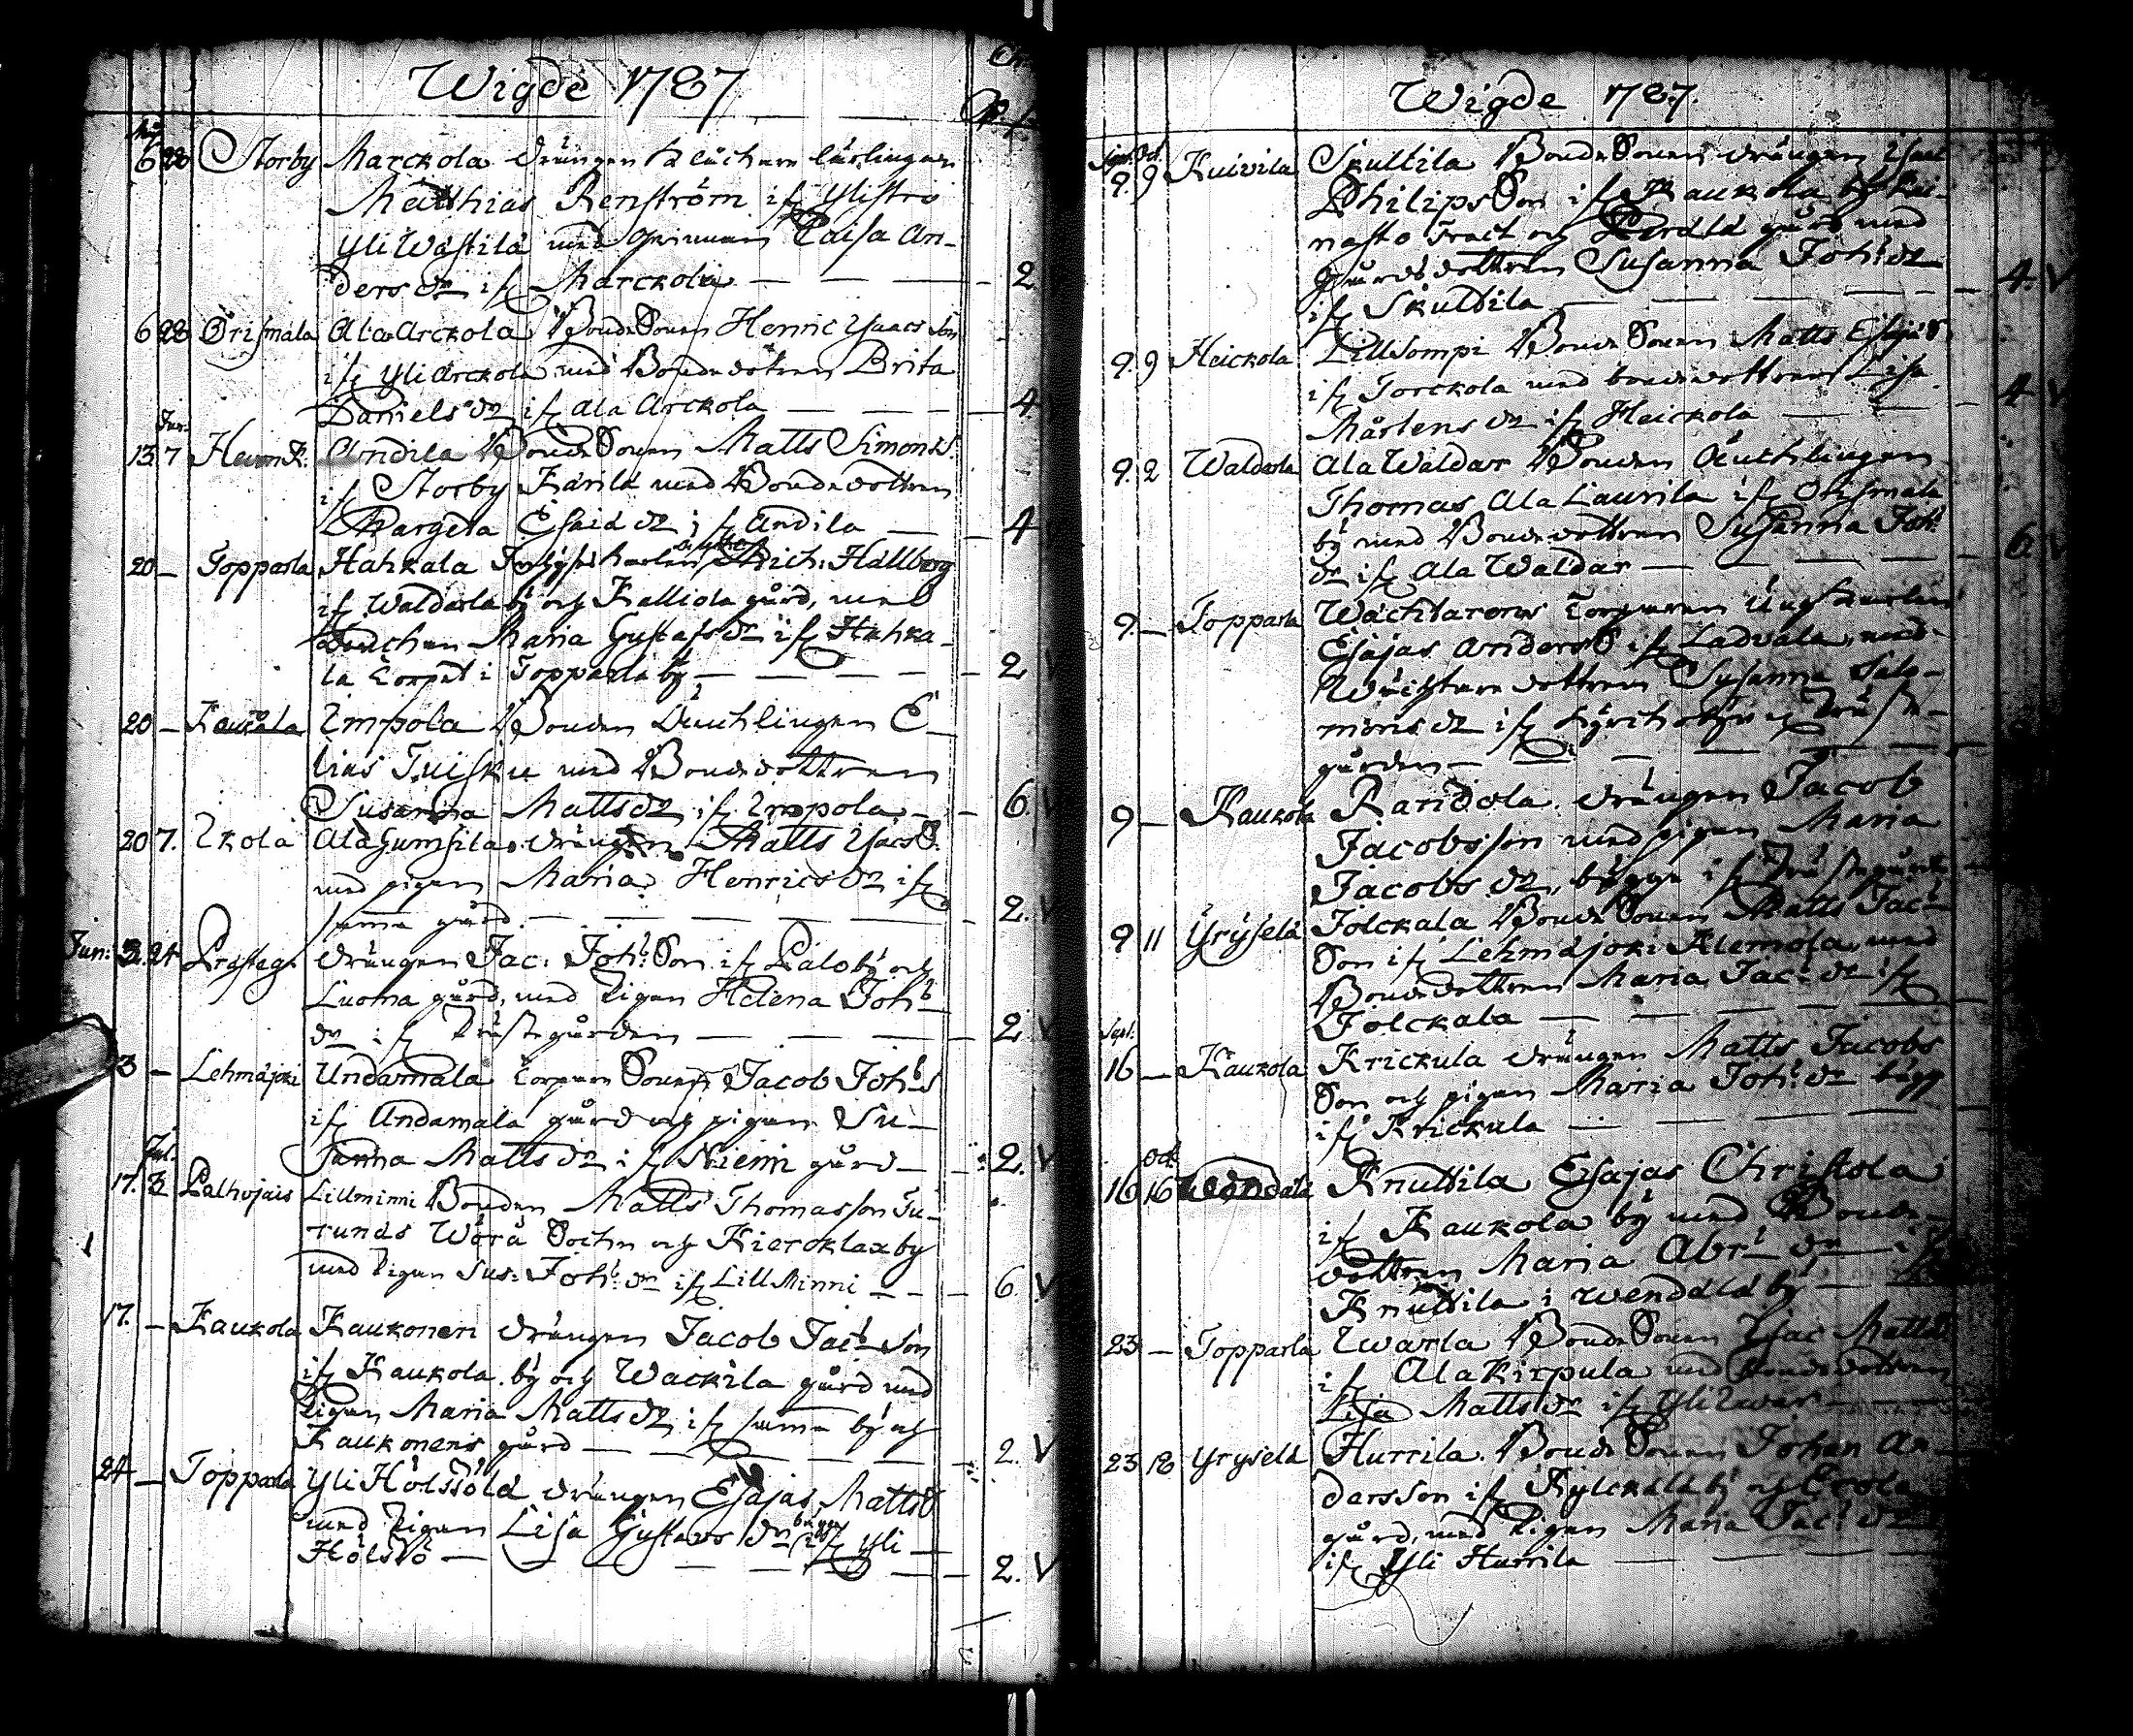 Wigde 1787
Maj
6 28 Storby Marckola drängen Klåckare lärlingen
Matthias Renström ifr Ylistro
Yli Wästilä med Qvinnan Caisa An-
ders dr ifr Marckola — 2.
6 28 Örismala Ala Arckola BondeSonen Henric Isaacs Son
ifr Yli Arckola med Bondedotren Brita
Daniels dr ifr Ala Arckola — 4
Jun.
13. 7 Heven K. Andila BondeSonen Matts Simons S.
ifr Storby Kärilä med Bondedottren
Margeta Esaiæ dr ifr Andila — 4
20 — Topparla Hahkala Mich: Hållberg
ifr Waldarla by och Kalliola gård, med
Maria Gustafs dr ifr Hahka-
la Torpet i Topparla by — 2 V
20 — Kaukola Impola Bonden Enchlingen E-
lias Tuisku med Bondedottren
Susanna Matts dr ifr Impola. — 6. V
20 7. Ikola Ala Gumsila, drängen Matts Isacs S.
med pigan Maria Henrics dr ifr
samma gård — 2. V
Jun: 3. 24 Prästeg. drängen Jac: Joh: Son ifr Palo by och
Luoma gård, med Pigan Helena Joh:
dr ifr Prästegården — 2. V
3 — Lehmäjoki Undamala Torpare Sonen Jacob Joh: S
ifr Andamala gård och pigan Su-
sanna Matts dr ifr Niemi gård — 2. V
Jul.
17. 8 Palhojais Lillminni Bonden Matts Thomasson Tu-
runds Wörå Sochn och Kierklax by
med Pigan Sus: Joh: dr ifr Lill Minni — 6 V
17. — Kaukola Kaukonen drängen Jacob Jac: Son
ifr Kaukola by och Wackila gård med
Pigan Maria Matts dr ifr samma by och
Kaukonens gård — 2. V
24 — Topparla Yli Hölsölä drängen Esajas Matts S
med Pigan Lisa Gustavs dr bägge ifr Yli
Hölsö — 2. V
Wigde 1787.
Sept. Oct.
9. 9 Kuivila Skuttila BondeSonen drängen Isaac
Philips Son ifr Kaukola by Rei-
nasto Tract och Perälä gård med
gårds dottren Susanna Joh: dr
ifr Skuttila — 4. V
9. 9 Heickola Lill Sompi BondeSonen Matts Esajæ S.
ifr Torckola med bondedottren Lisa
Mårtens dr ifr Heickola — 4 V
9. 2 Waldarla Ala Waldar Bonden Änchlingen
Thomas Ala Laurila ifr Orismala
by med Bondedottren Susanna Joh:
dr ifr Ala Waldar — 6 V
9. — Topparla Wächtarens Torparen Ungkarlen
Esajas Anders S ifr Ladvala, med
Wächtare dottren Susanna Salo-
mons dr ifr
gården —
9 — Kaukola Randola drängen Jacob
Jacobsson med pigan Maria
Jacobs dr, bägge ifr Prästegården
9 11 Yryselä Jolckala BondeSonen Matts Jac:
Son ifr Lehmäjoki Alemola, med
Bondedottren Maria Jac: dr ifr
Jolckala —
Sept.
16 — Kaukola Krickula drängen Matts Jacobs
Son och pigan Maria Joh: dr bägg
ifr Krickula —
Oct.
16 16 Wendälä Knuttila Esajas Christola
ifr Kaukola by med Bonde-
dottren Maria Abr: dr ifr
Knuttila i Wendälä by —
23 — Topparla Iwarla BondeSonen Isac Matts S
ifr Ala Kirpula med bondedottren
Lisa Matts dr ifr Yli Iwar —
23 18 Yryselä Hurrila. BondeSonen Johan An-
dersson ifr Kylckälä by och
gård, med Pigan Maria Jac: dr
ifr Yli Hurrila —